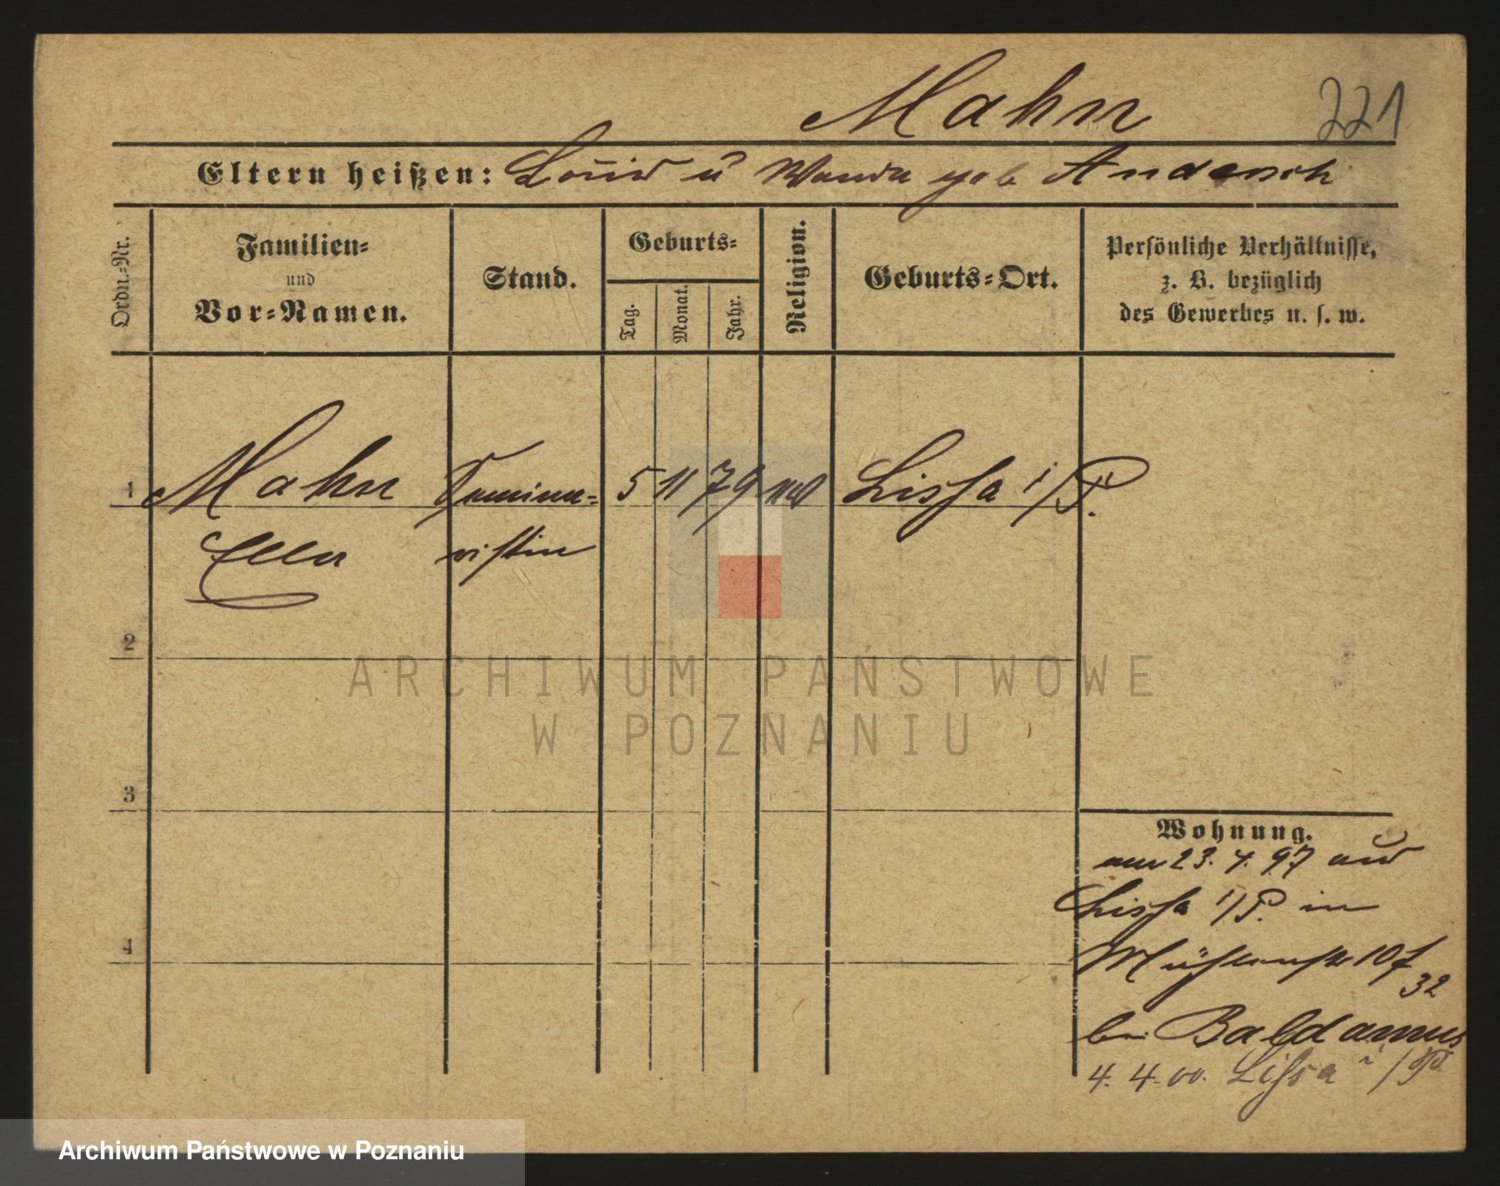 Mahn
221
Eltern heißen: Louis u Wanda geb Andersch
Ordn.-Nr.
Familien-
und
Vor-Namen.
Stand.
Geburts-
Tag.
Monat.
Jahr.
Religion.
Geburts-Ort.
Persönliche Verhältnisse,
z. B. bezüglich
des Gewerbes u. s. w.
1 Mahn Semina- 5 11 79 Lissa i/P.
Ella ristin
2
3
4
Wohnung.
am 23. 4. 97 aus
Lissa i/P. in
Mühlenstr 10
32
bei Baldamus
4. 4. 00. Lissa i/P.
ARCHIWUM PAŃSTWOWE
W POZNANIU
Archiwum Państwowe w Poznaniu